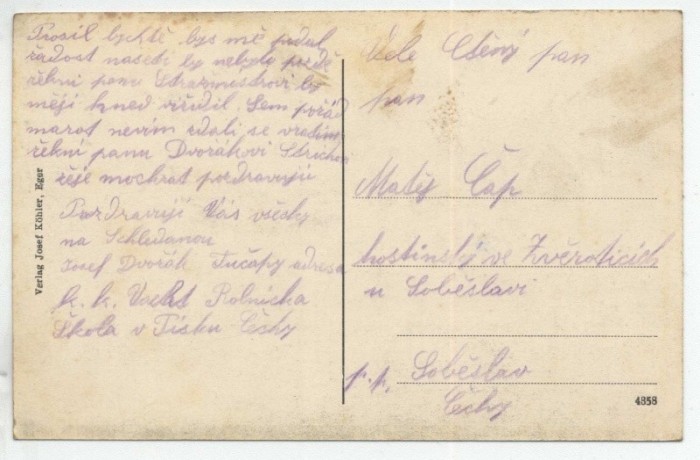 Prosil bychtě bys mě podal
řádost neb by nebylo
řekni panu Strazmistrovi by
měji hned viřidil. Sem pořád
marot nevím zdali se vratim
řekni panu Dvořákovi
těje mochrat pozdravuji
Pozdravuji Vás všechy
na Schledanou
Josef Dvořák Tučapy adresa
k. k. Vacht Rolnicka
Škola v Tisku Čechy
Verlag Josef Köhler, Eger
Vele Ctěný pan
pan
Matěj Čáp
hostinský ve Zvěroticích
u Soběslavi
p. p. Soběslav
Čechy
4858